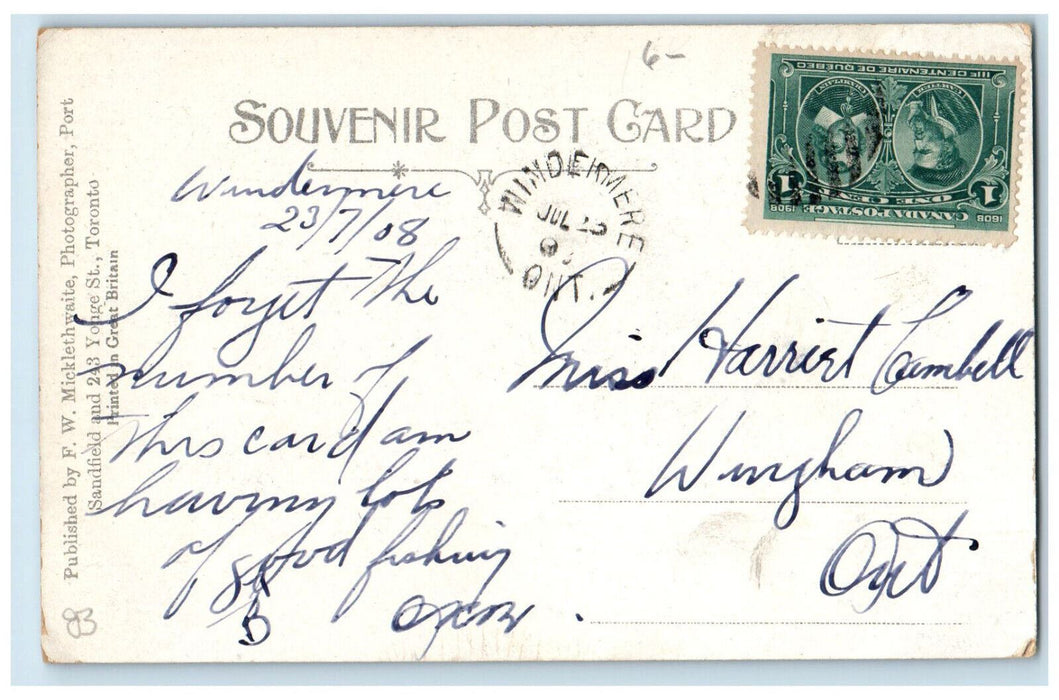 6-
SOUVENIR POST CARD
IIIE CENTENAIRE DE QUEBEC
CARTIER CHAMPLAIN
1 1
ONE CENT
1608 CANADA POSTAGE 1908
WINDERMERE
JUL 23
ONT.
Published by F. W. Micklethwaite, Photographer, Port
Sandfield and 243 Yonge St., Toronto
Printed in Great Britain
Windermere
23/7/08
I forget the
number of
this card am
having lots
of good fishing
Miss Harriet Cambell
Wingham
Ont
83